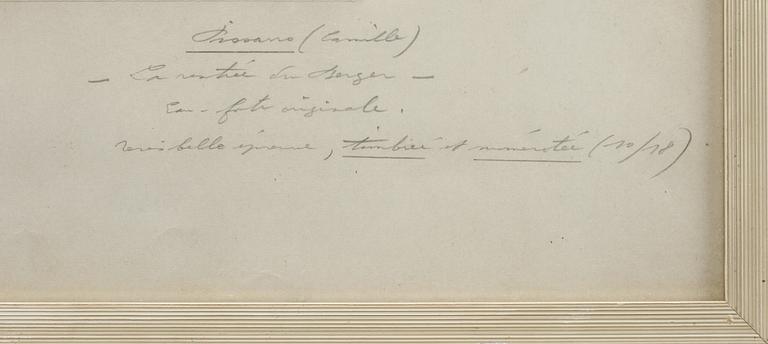 Pissarro (Camille)
— La rentrée du Berger —
Eau-forte originale.
très belle épreuve, timbrée et numérotée (10/18)